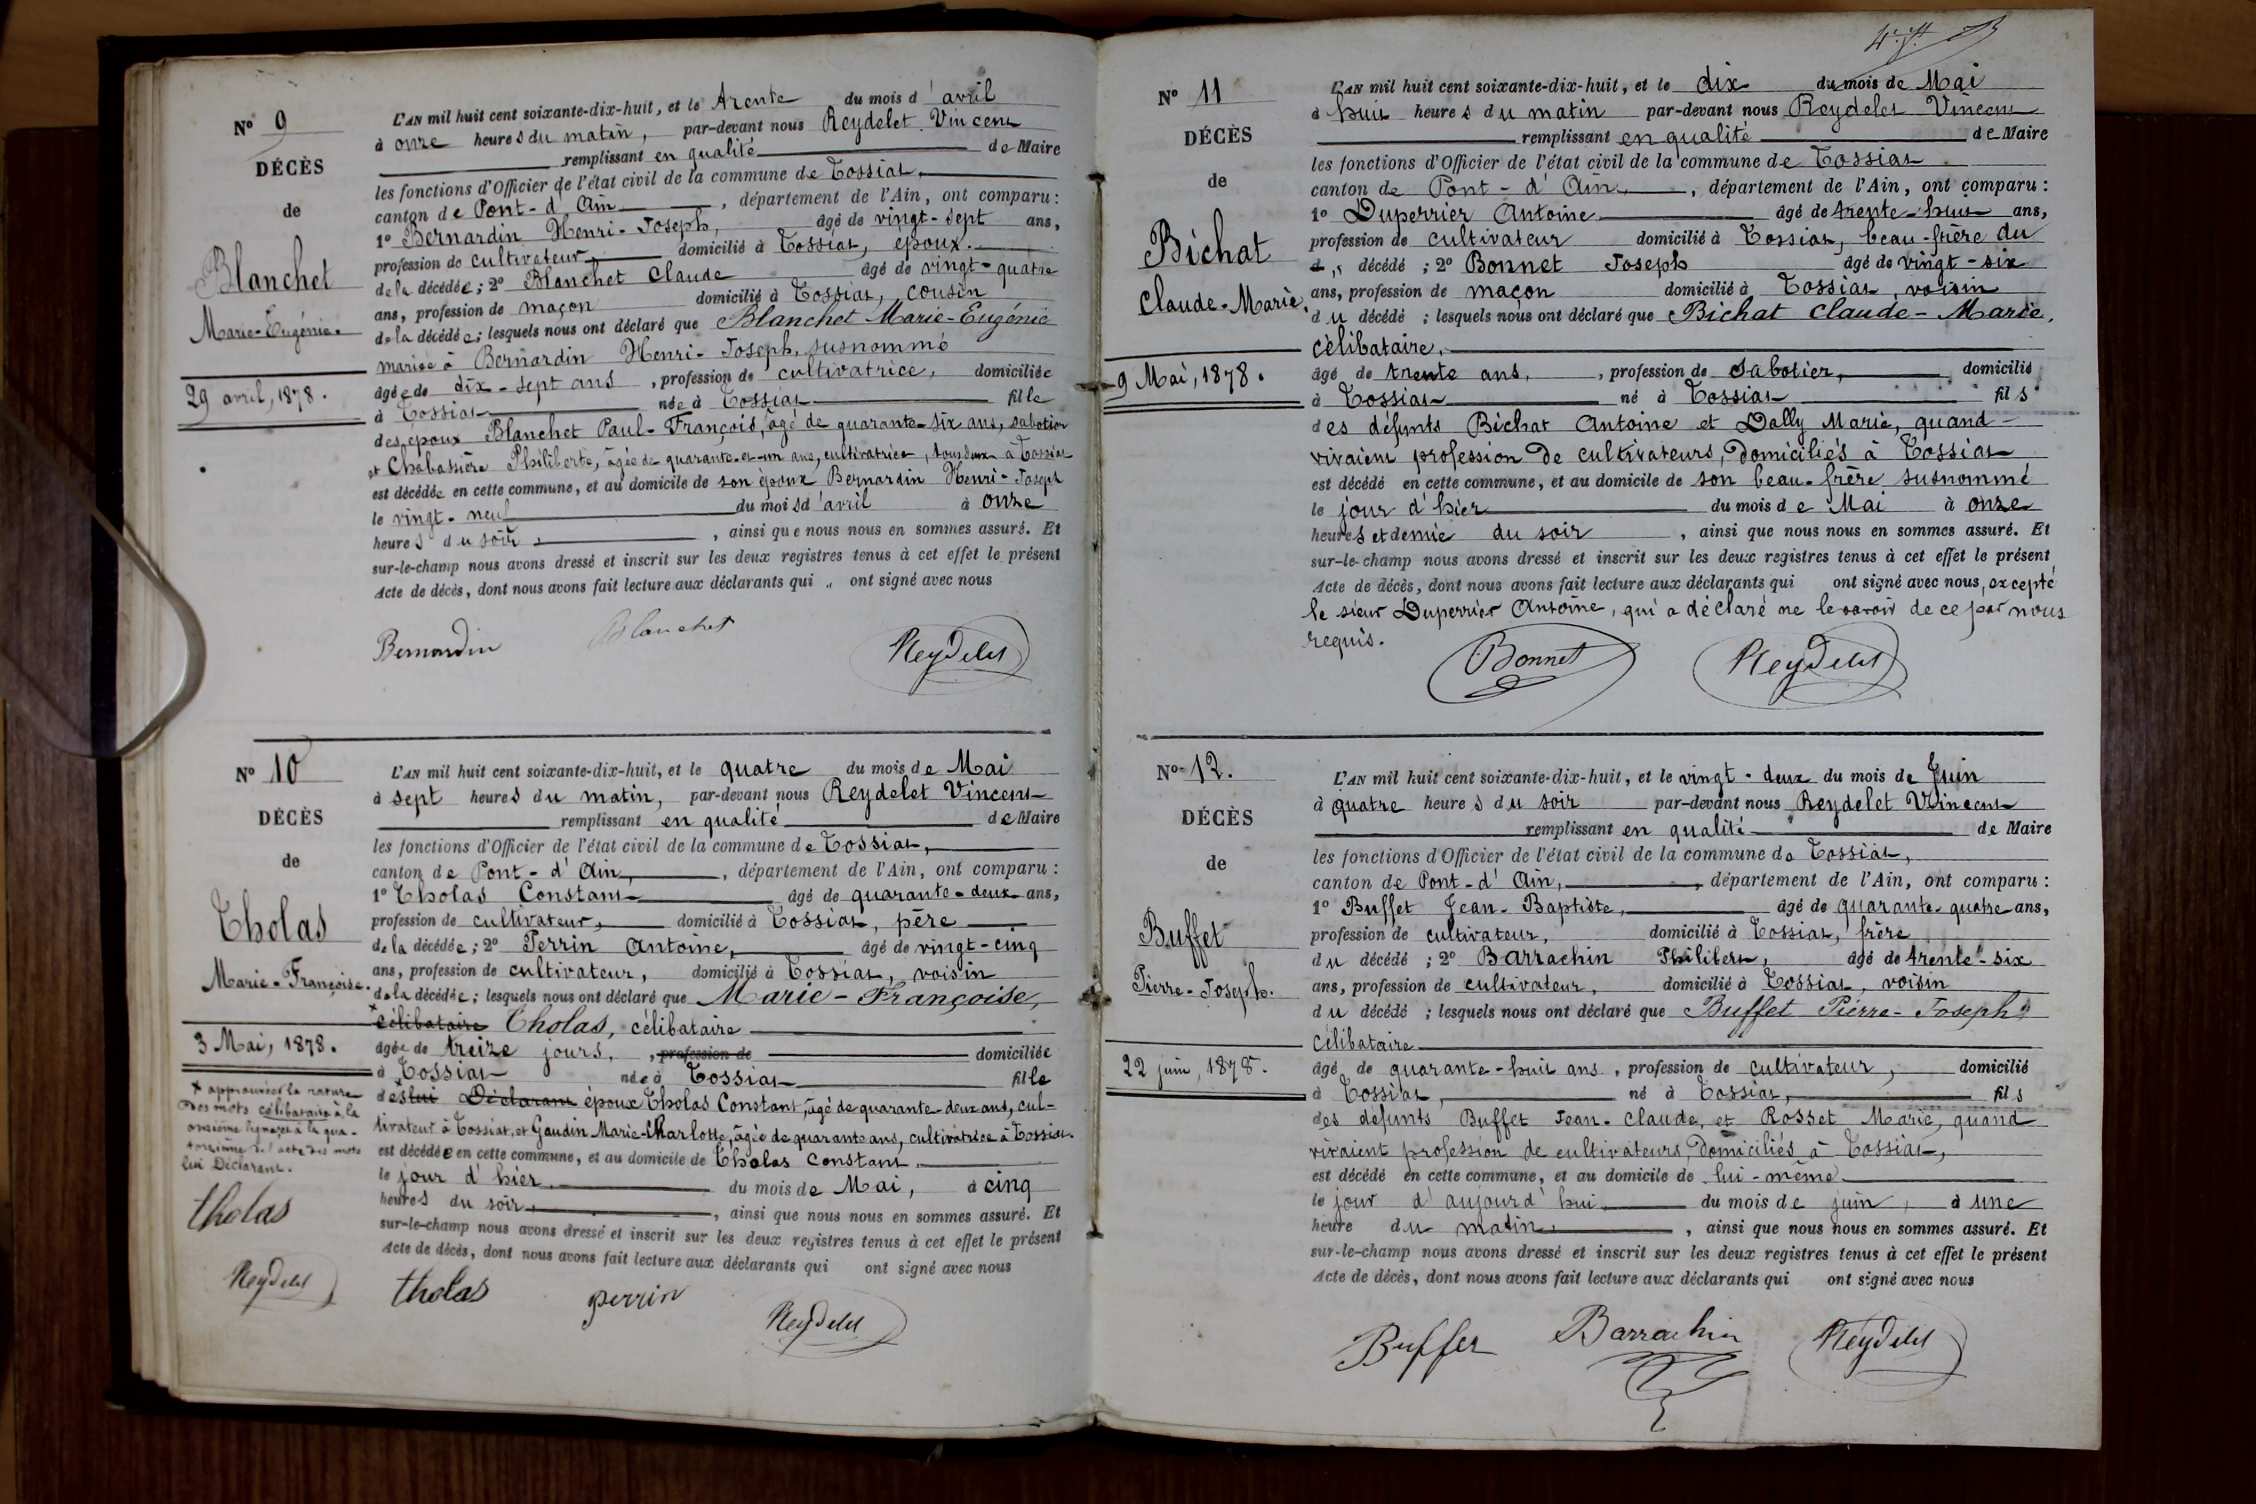 Nº 9
DÉCÈS
de
Blanchet
Marie-Eugénie.
29 avril, 1878.
L'AN mil huit cent soixante-dix-huit, et le trente du mois d'avril
à onze heures du matin, par-devant nous Reydelet Vincent
remplissant en qualité de Maire
les fonctions d'Officier de l'état civil de la commune de Tossiat,
canton de Pont-d'Ain, département de l'Ain, ont comparu :
1º Bernardin Henri-Joseph, âgé de vingt-sept ans,
profession de cultivateur, domicilié à Tossiat, époux
de la décédée ; 2º Blanchet Claude âgé de vingt-quatre
ans, profession de maçon domicilié à Tossiat, cousin
de la décédée ; lesquels nous ont déclaré que Blanchet Marie-Eugénie
mariée à Bernardin Henri-Joseph, susnommé
âgée de dix-sept ans, profession de cultivatrice, domiciliée
à Tossiat née à Tossiat fille
des époux Blanchet Paul-François, âgé de quarante-six ans, sabotier
et Chabassière Philiberte, âgée de quarante-et-un ans, cultivatrice, tous deux à Tossiat
est décédée en cette commune, et au domicile de son époux Bernardin Henri-Joseph
le vingt-neuf du mois d'avril à onze
heures du soir, ainsi que nous nous en sommes assuré. Et
sur-le-champ nous avons dressé et inscrit sur les deux registres tenus à cet effet le présent
Acte de décès, dont nous avons fait lecture aux déclarants qui „ ont signé avec nous
Bernardin Blanchet Reydelet
Nº 10
DÉCÈS
de
Tholas
Marie-Françoise.
3 Mai, 1878.
+ approuvées la rature
des mots célibataire à la
onzième ligne et à la qua-
torzième de l'acte des mots
lui Déclarant.
tholas
Reydelet
L'AN mil huit cent soixante-dix-huit, et le quatre du mois de Mai
à sept heures du matin, par-devant nous Reydelet Vincent
remplissant en qualité de Maire
les fonctions d'Officier de l'état civil de la commune de Tossiat,
canton de Pont-d'Ain, département de l'Ain, ont comparu :
1º Tholas Constant âgé de quarante-deux ans,
profession de cultivateur, domicilié à Tossiat, père
de la décédée ; 2º Perrin Antoine, âgé de vingt-cinq
ans, profession de cultivateur, domicilié à Tossiat, voisin
de la décédée ; lesquels nous ont déclaré que Marie-Françoise,
+ célibataire Tholas, célibataire
âgée de treize jours, profession de domiciliée
à Tossiat née à Tossiat fille
des + lui Déclarant époux Tholas Constant, âgé de quarante deux ans, cul-
tivateur à Tossiat, et Gaudin Marie-Charlotte, âgée de quarante ans, cultivatrice à Tossiat.
est décédée en cette commune, et au domicile de Tholas Constant,
le jour d'hier, du mois de Mai, à cinq
heures du soir, ainsi que nous nous en sommes assuré. Et
sur-le-champ nous avons dressé et inscrit sur les deux registres tenus à cet effet le présent
Acte de décès, dont nous avons fait lecture aux déclarants qui ont signé avec nous
tholas perrin Reydelet
Nº 11
DÉCÈS
de
Bichat
Claude-Marie.
9 Mai, 1878.
L'AN mil huit cent soixante-dix-huit, et le dix du mois de Mai
à huit heures du matin par-devant nous Reydelet Vincent
remplissant en qualité de Maire
les fonctions d'Officier de l'état civil de la commune de Tossiat
canton de Pont-d'Ain, département de l'Ain, ont comparu :
1º Duperrier Antoine âgé de trente-huit ans,
profession de cultivateur domicilié à Tossiat, beau-frère du
d „ décédé ; 2º Bonnet Joseph âgé de vingt-six
ans, profession de maçon domicilié à Tossiat, voisin
du décédé ; lesquels nous ont déclaré que Bichat Claude-Marie,
célibataire,
âgé de trente ans, profession de Sabotier, domicilié
à Tossiat né à Tossiat fils
des défunts Bichat Antoine et Dally Marie, quand
vivaient profession de cultivateurs, domiciliés à Tossiat
est décédé en cette commune, et au domicile de son beau-frère susnommé
le jour d'hier du mois de Mai à onze
heures et demie du soir, ainsi que nous nous en sommes assuré. Et
sur-le-champ nous avons dressé et inscrit sur les deux registres tenus à cet effet le présent
Acte de décès, dont nous avons fait lecture aux déclarants qui ont signé avec nous, excepté
le sieur Duperrier Antoine, qui a déclaré ne le savoir de ce par nous
requis.
Bonnet Reydelet
Nº 12.
DÉCÈS
de
Buffet
Pierre-Joseph.
22 juin, 1878.
L'AN mil huit cent soixante-dix-huit, et le vingt-deux du mois de Juin
à quatre heures du soir par-devant nous Reydelet Vincent
remplissant en qualité de Maire
les fonctions d'Officier de l'état civil de la commune de Tossiat,
canton de Pont-d'Ain, département de l'Ain, ont comparu :
1º Buffet Jean-Baptiste, âgé de quarante-quatre ans,
profession de cultivateur, domicilié à Tossiat, frère
du décédé ; 2º Barrachin Philibert, âgé de trente-six
ans, profession de cultivateur, domicilié à Tossiat, voisin
du décédé ; lesquels nous ont déclaré que Buffet Pierre-Joseph,
célibataire
âgé de quarante-huit ans, profession de cultivateur, domicilié
à Tossiat, né à Tossiat, fils
des défunts Buffet Jean-Claude, et Rosset Marie, quand
vivaient profession de cultivateurs, domiciliés à Tossiat,
est décédé en cette commune, et au domicile de lui-même
le jour d'aujourd'hui du mois de juin, à une
heure du matin, ainsi que nous nous en sommes assuré. Et
sur-le-champ nous avons dressé et inscrit sur les deux registres tenus à cet effet le présent
Acte de décès, dont nous avons fait lecture aux déclarants qui ont signé avec nous
Buffet Barrachin Reydelet